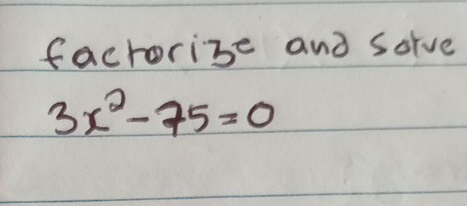 factorize and solve
3x²-75=0